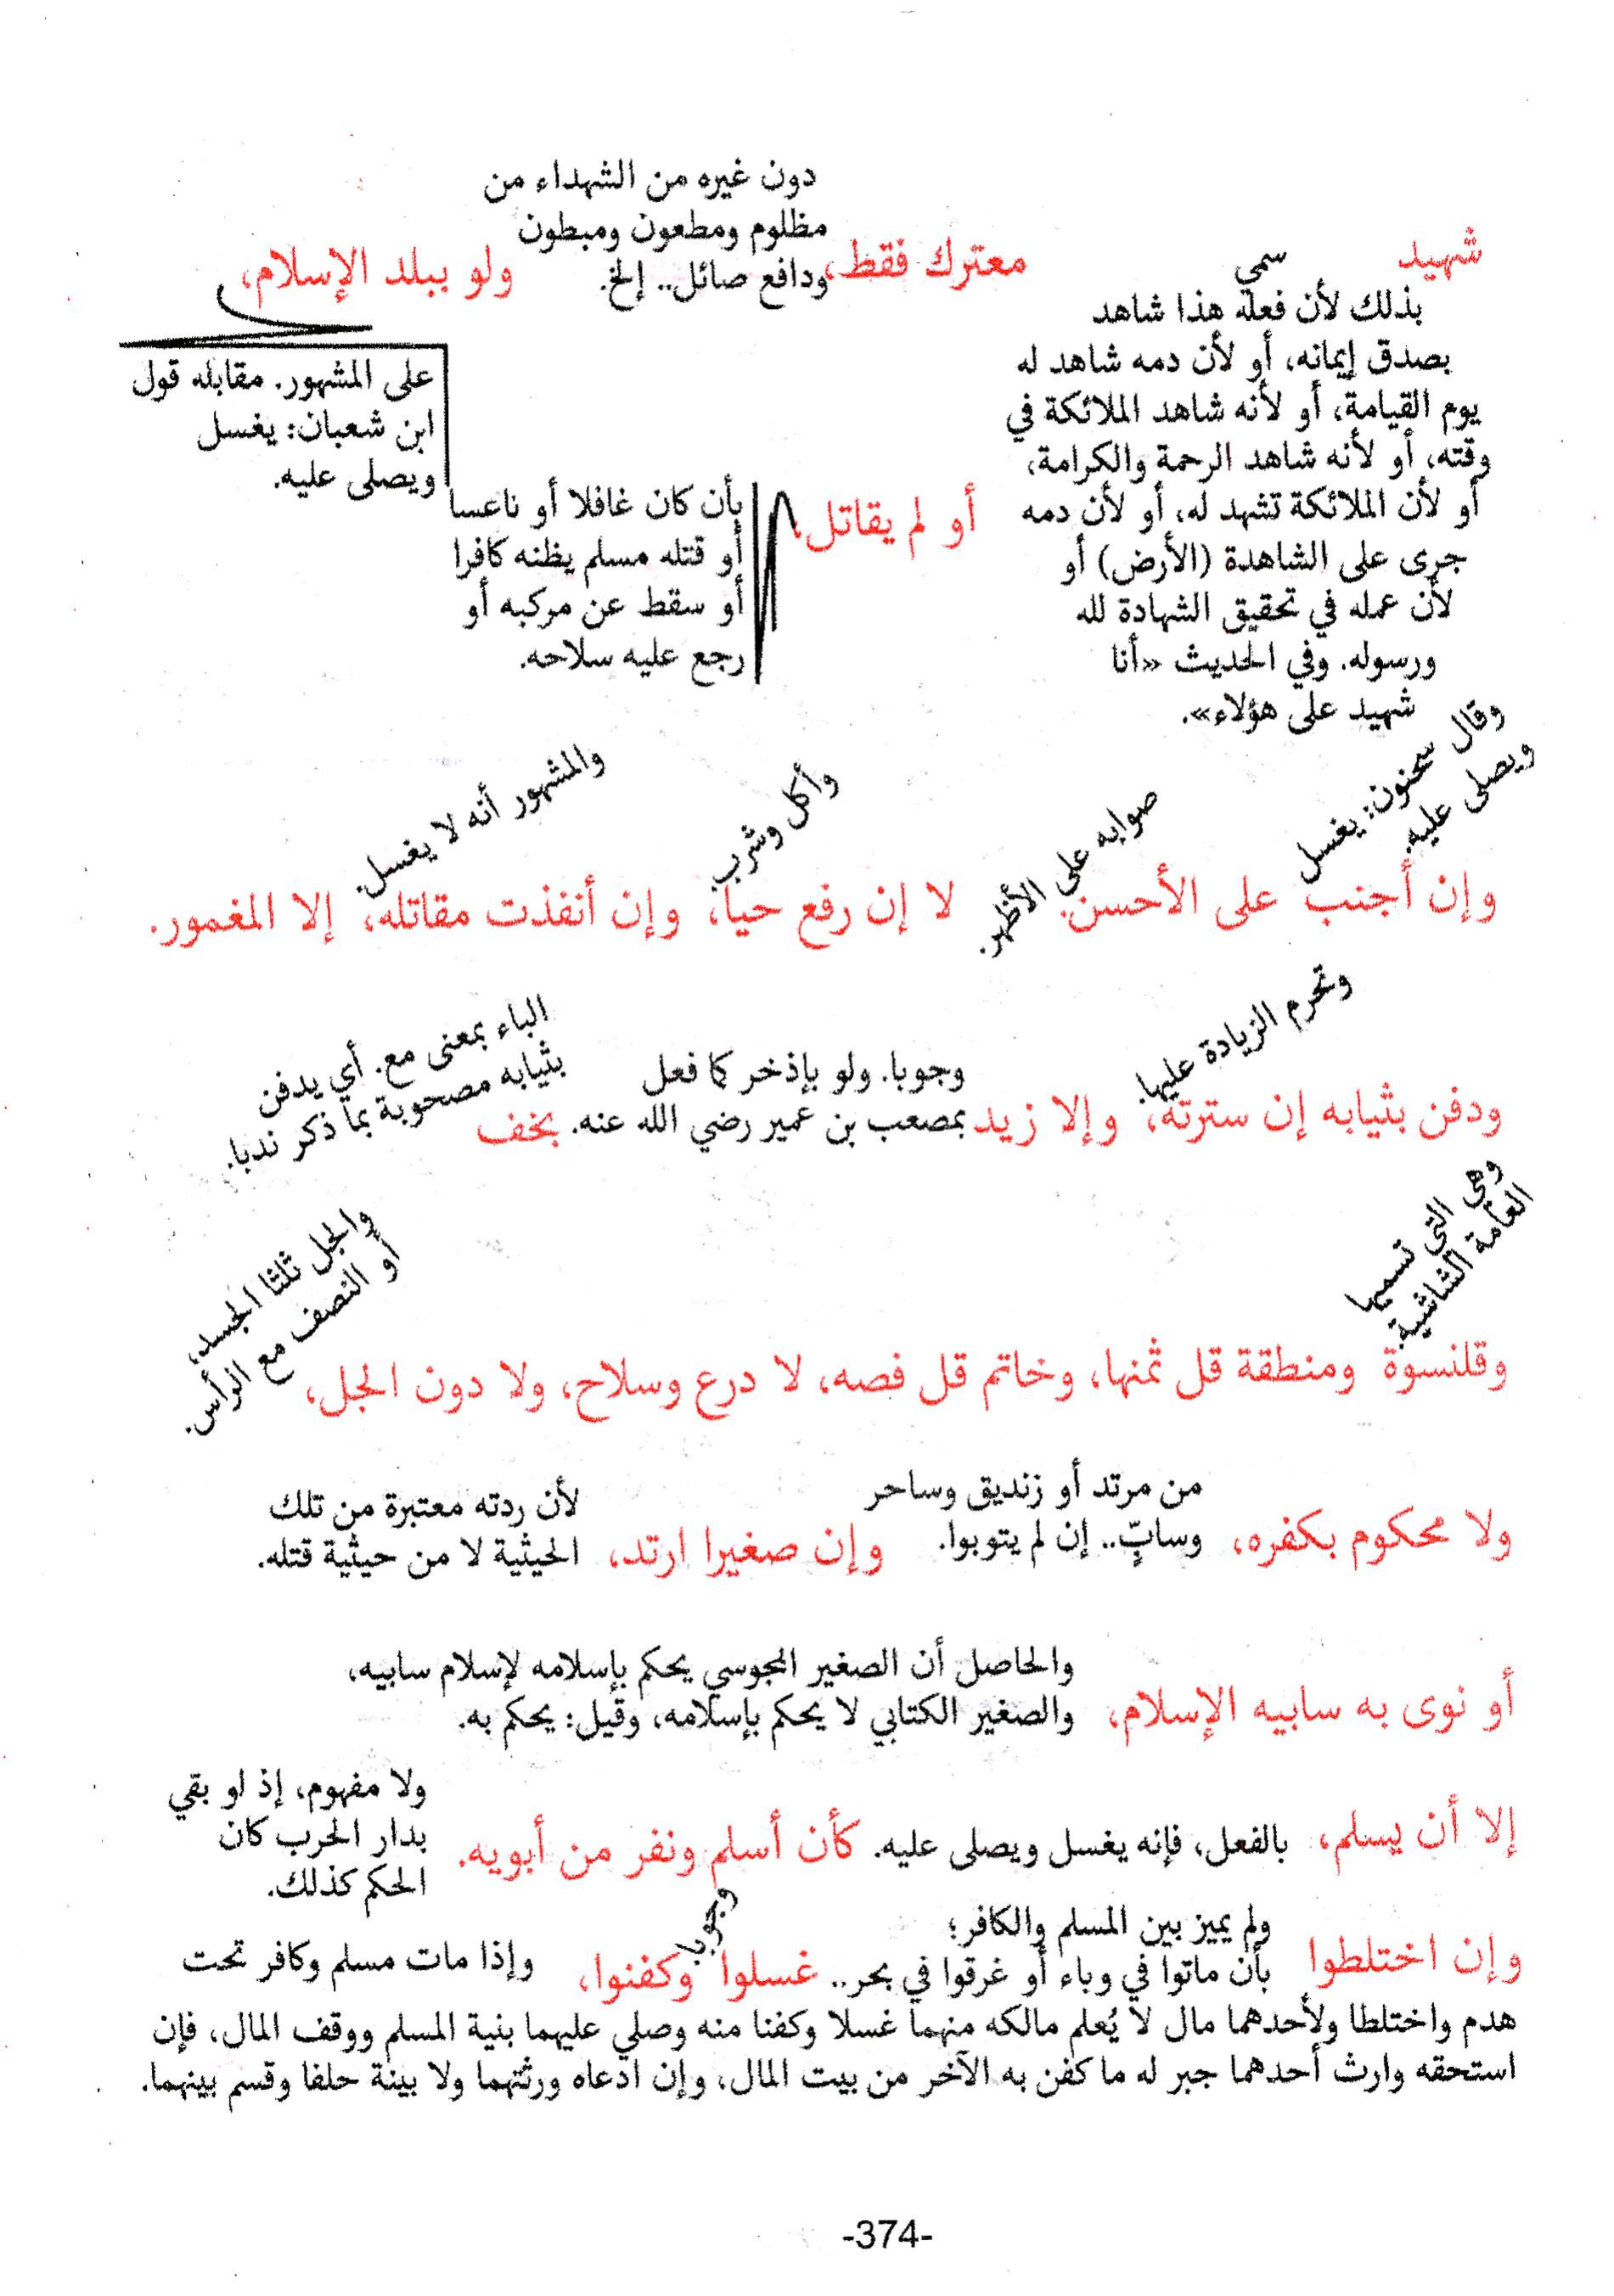 شهيد
سمي
بذلك لأن فعله هذا شاهد
بصدق إيمانه، أو لأن دمه شاهد له
يوم القيامة، أو لأنه شاهد الملائكة في
وقته، أو لأنه شاهد الرحمة والكرامة،
أو لأن الملائكة تشهد له، أو لأن دمه
جرى على الشاهدة (الأرض) أو
لأن عمله في تحقيق الشهادة لله
ورسوله. وفي الحديث «أنا
شهيد على هؤلاء».
معترك فقط،
دون غيره من الشهداء من
مظلوم ومطعون ومبطون
ودافع صائل.. إلخ.
ولو ببلد الإسلام،
على المشهور. مقابله قول
ابن شعبان: يغسل
ويصلى عليه.
أو لم يقاتل،
بأن كان غافلا أو ناعسا
أو قتله مسلم يظنه كافرا
أو سقط عن مركبه أو
رجع عليه سلاحه.
وإن أجنب
وقال سحنون: يغسل
ويصلى عليه.
على الأحسن.
صوابه على الأظهر.
لا إن رفع حيا،
وأكل وشرب.
وإن أنفذت مقاتله،
والمشهور أنه لا يغسل.
إلا المغمور.
ودفن بثيابه إن سترته،
وتحرم الزيادة عليها.
وإلا زيد
وجوبا. ولو بإذخر كما فعل
بمصعب بن عمير رضي الله عنه.
بخف
الباء بمعنى مع. أي يدفن
بثيابه مصحوبة بما ذكر ندبا.
وقلنسوة
وهي التي تسميها
العامة الشاشية.
ومنطقة قل ثمنها، وخاتم قل فصه، لا درع وسلاح، ولا دون الجل،
والجل ثلثا الجسد،
أو النصف مع الرأس.
ولا محكوم بكفره،
من مرتد أو زنديق وساحر
وسابٍّ.. إن لم يتوبوا.
وإن صغيرا ارتد،
لأن ردته معتبرة من تلك
الحيثية لا من حيثية قتله.
أو نوى به سابيه الإسلام،
والحاصل أن الصغير المجوسي يحكم بإسلامه لإسلام سابيه،
والصغير الكتابي لا يحكم بإسلامه، وقيل: يحكم به.
إلا أن يسلم،
بالفعل، فإنه يغسل ويصلى عليه.
كأن أسلم ونفر من أبويه.
ولا مفهوم، إذ لو بقي
بدار الحرب كان
الحكم كذلك.
وإن اختلطوا
ولم يميز بين المسلم والكافر؛
بأن ماتوا في وباء أو غرقوا في بحر..
غسلوا
وجوبا
وكفنوا،
وإذا مات مسلم وكافر تحت
هدم واختلطا ولأحدهما مال لا يُعلم مالكه منهما غسلا وكفنا منه وصلي عليهما بنية المسلم ووقف المال، فإن
استحقه وارث أحدهما جبر له ما كفن به الآخر من بيت المال، وإن ادعاه ورثتهما ولا بينة حلفا وقسم بينهما.
-374-